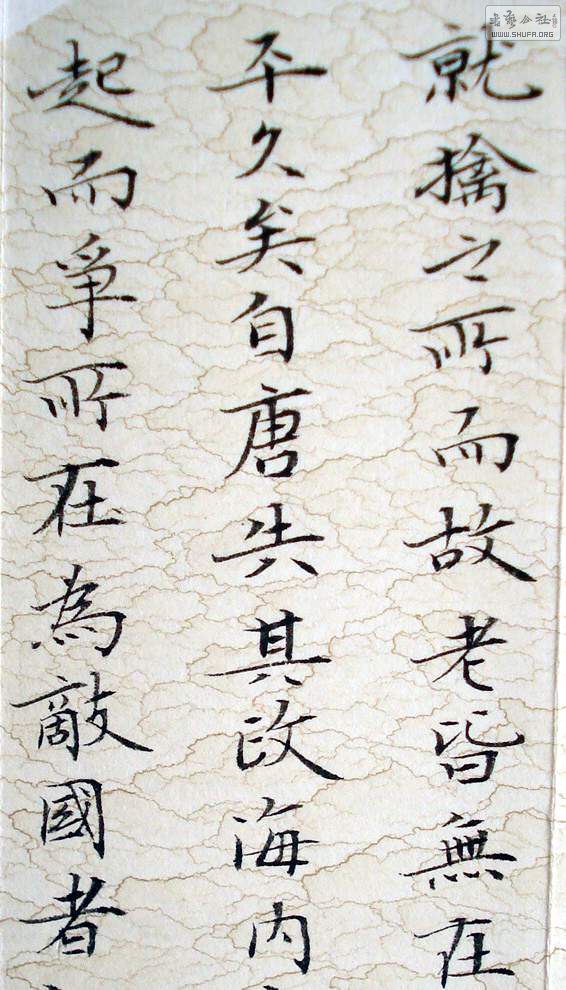 就擒之所而故老皆無在
平久矣自唐失其政海内
起而爭所在為敵國者
書藝公社
WWW.SHUFA.ORG